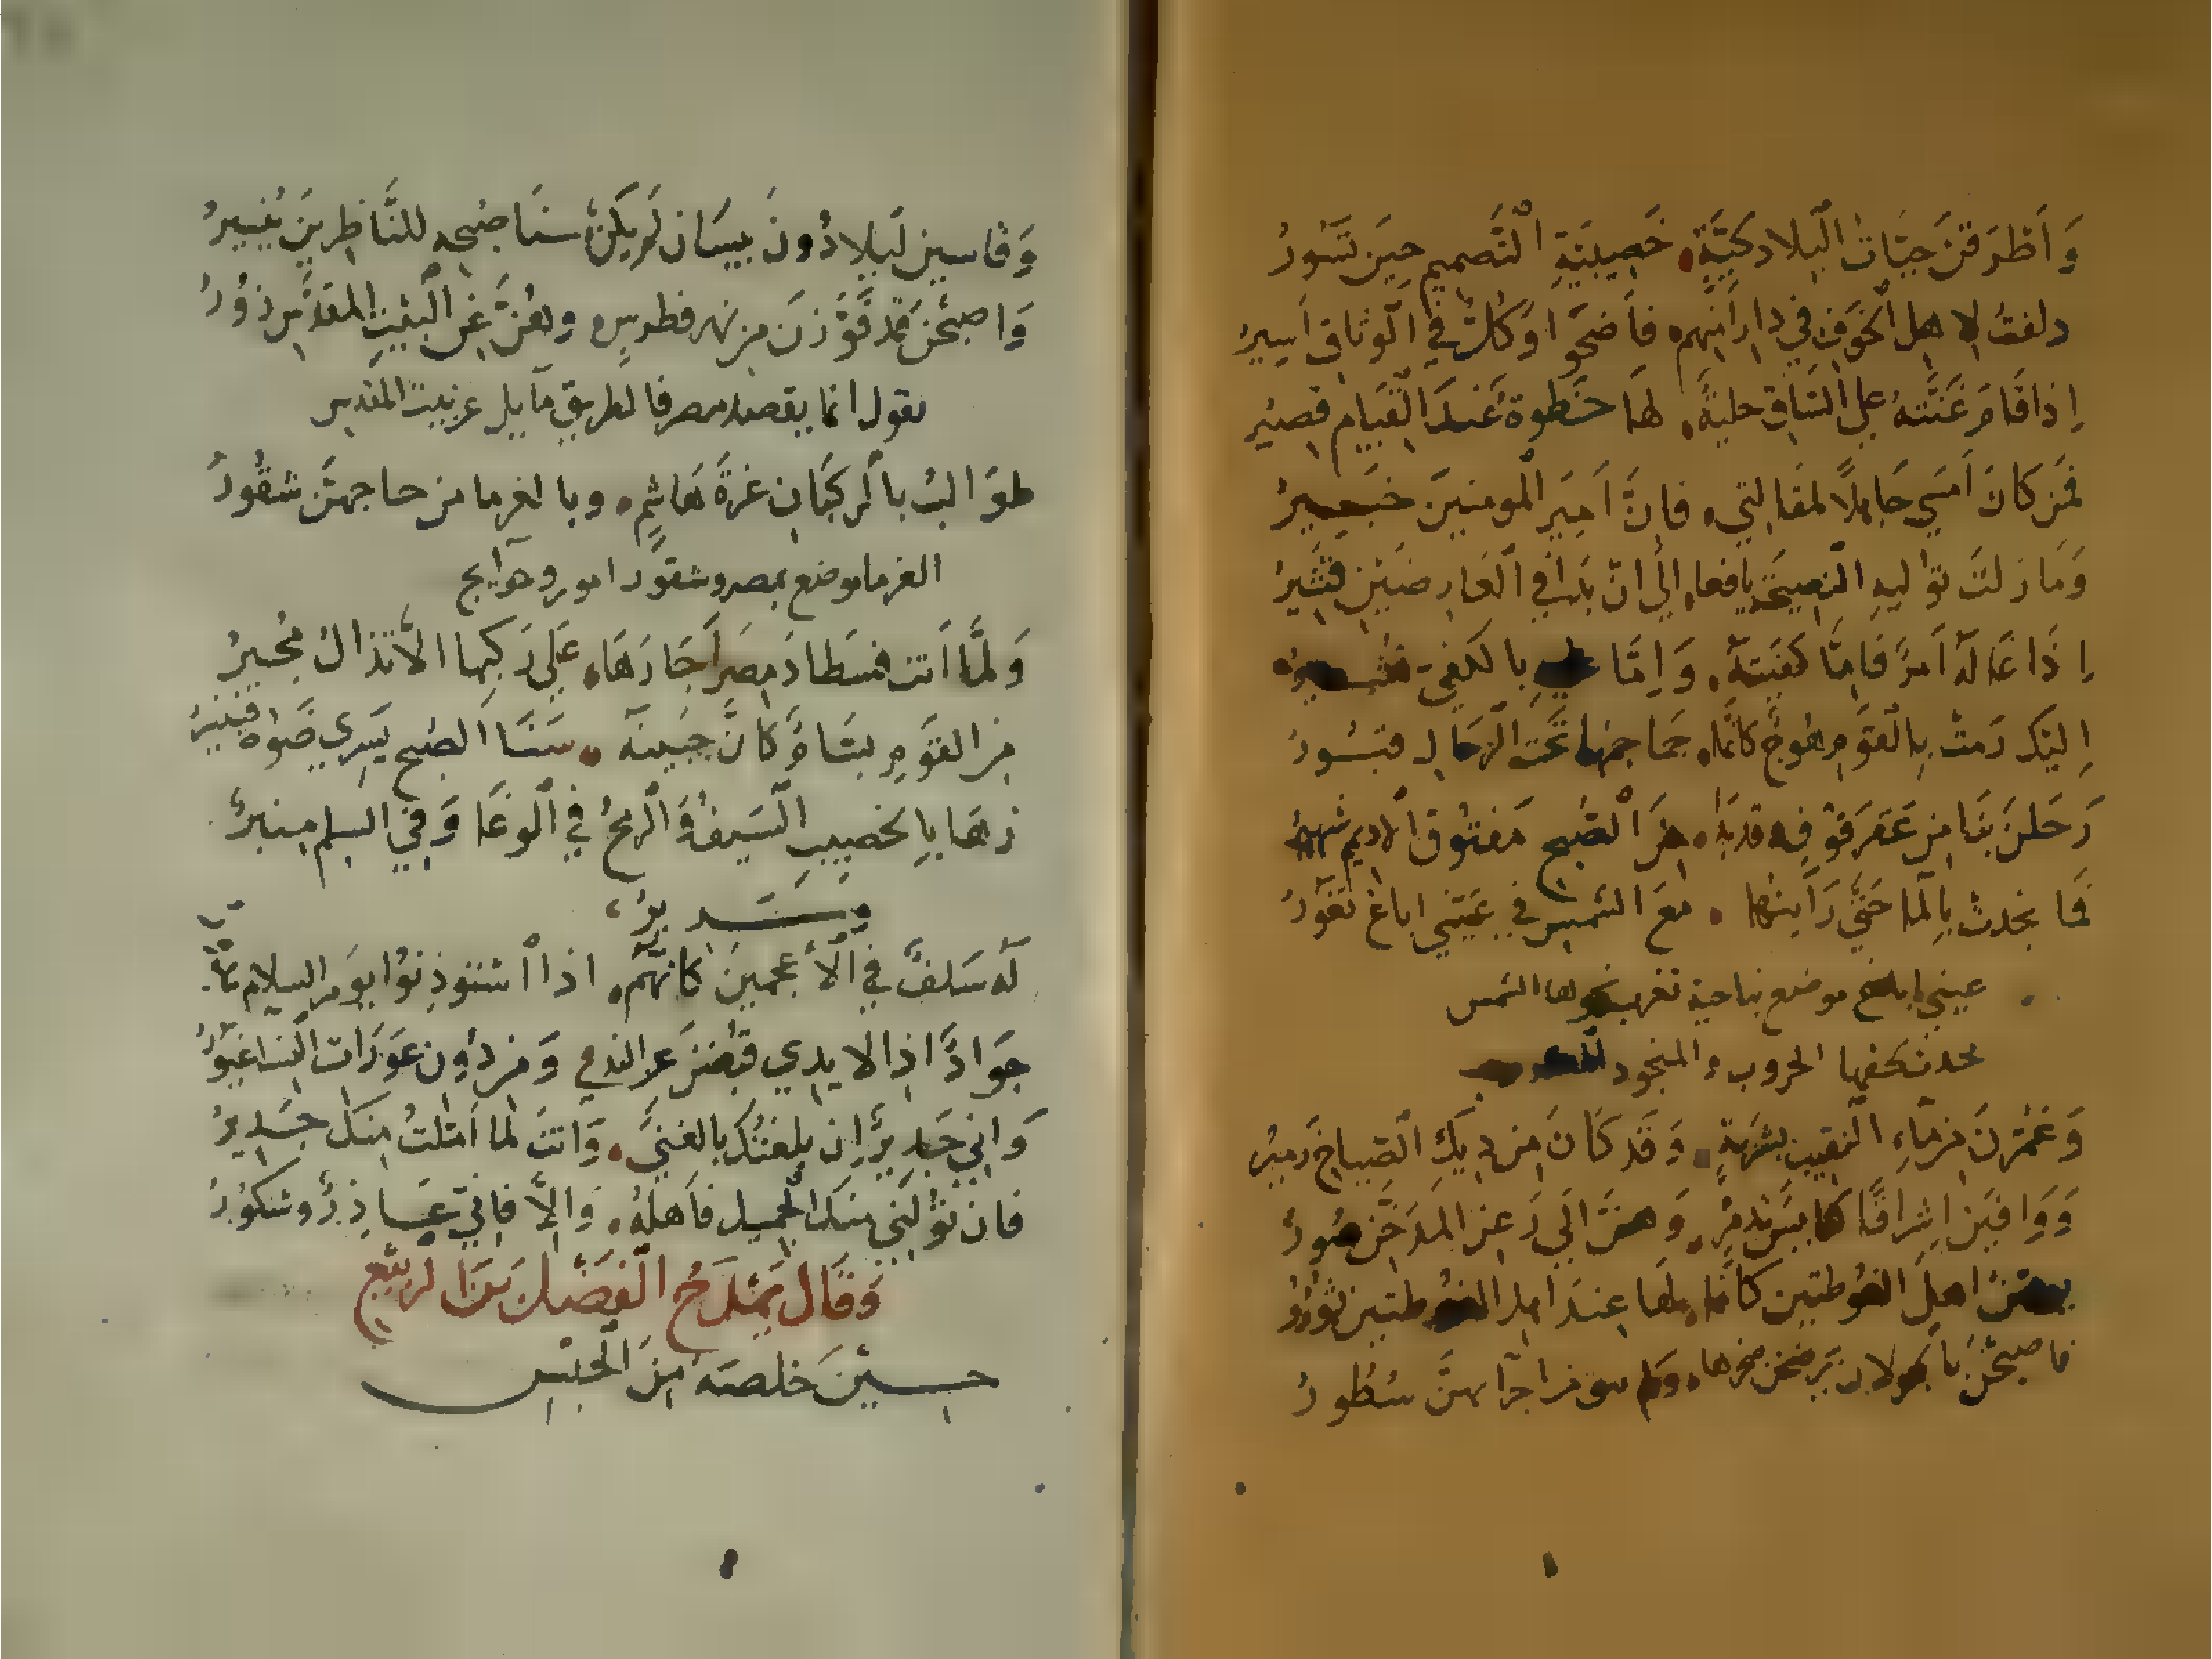 وَاَطْرَقْنَ حَيَّاتُ الْبِلَادِ كَيَّةٍ خَصِيبِيَّةِ التَّصْمِيمِ حِيَن تَسُورُ
دلفتُ لاهل الخوف في دار امنهم فأضحوا وكلٌ في الوثاق اَسِيرُ
اِذا قَامَ غَنَّتْهُ على السَاق حلية لهَا خَطْوة عَندَ القيام قصير
فَمن كانَ اَمسَي جَاهلاً لمقالتي فانَّ اَمِيَر المومنينَ خَبَيرُ
وَمَا زلتَ توليهِ النصيحَة يافعا اِلى ان بَدا في العَارِضَيْن قَتِيَرُ
اِذَا غَالَهُ اَمرٌ فاِمَّا كفيتَهُ وَاِمَّا عليهِ بالكفي
اِليكَ رَمتْ بِالقَومِ هُوجٌ كانما جَمَاجمُها تَحتَ الرحَال قبُورُ
رَحَلنَ بنَا من عَقرَقُوف وقد بدَا مِنَ الصُبحِ مَفتُوق الاديم شهيرُ
فَما نجدتْ بالمَا حَتَّي رَاَيتُها معَ الشمس في عَيْنَي اباغ تغورُ
عيني اباغ موضع بناحية تغرب نحوها الشمس
وَغُمِّرْنَ من مَاءِ النقيب بشربَةٍ وَقَد كَانَ من ديك الصَباح زَميرُ
وَوَافَين اِشراقًا كنايسَ تدمُرٍ وَهنَّ اِلَي رَعن المدَخَّن صُورُ
اهلَ الغُوطتين كانما لها عِندَ اهل الغُوطتين ثوورُ
فاصبحنَ بالجولان يَرضخنَ صخرها ولم يبق من اجرَامهنَّ شُطُورُ
وَقاسين ليلا دُونَ بيسَان لَم يكن سنَا صُبحهِ للنَّاظِرينَ يُنيرُ
وَاصبحْنَ قد فَوَّزنَ من نهر فطرسٍ وهُنَّ عن البَيْتِ المقدَّس زُورُ
يقول انما يقصد مصر فالطريق مايل عن بيت المقدس
طوَالبُ بالركبَان غزةَ هَاشمٍ وبالفرما من حاجهنَّ شقُورُ
الفرما موضع بمصر وشقور امور وحوايج
وَلمَّا اَتت فسطاطَ مِصرَ اَجَارَهَا عَلي رَكبِها الاتذالُ مُجيرُ
من القومِ بسَامٌ كانَّ جَبينَهُ سَنَا الصُبحِ يَسرِي ضَوْهُ فينيرُ
زهَا بالخصيبِ السَيفُ وَالرمحُ في الوغَا وَفي السلم منبرٌ
وسَديرُ
لهُ سَلفٌ في الاَعجمينَ كانهم اذا استوذِنُوا يومَ السلام
جَوَادٌ اذا الايدي قَبضنَ عن الندي وَمن دُون عَورَات النسا غيُورُ
وَاني جَديرٌ اِن بلغتُكَ بالغنَي وَانتَ لما اَمّلتُ منكَ جَديرُ
فان تولني منكَ الجميل فاَهلهُ وَالاَّ فاني عَاذِرٌ وشكُورُ
وَقَالَ يَمْدَحُ الْفَضْلَ بَنَ الرَبِيْعِ
حسينَ خلصَهُ مِنَ الحَبسِ